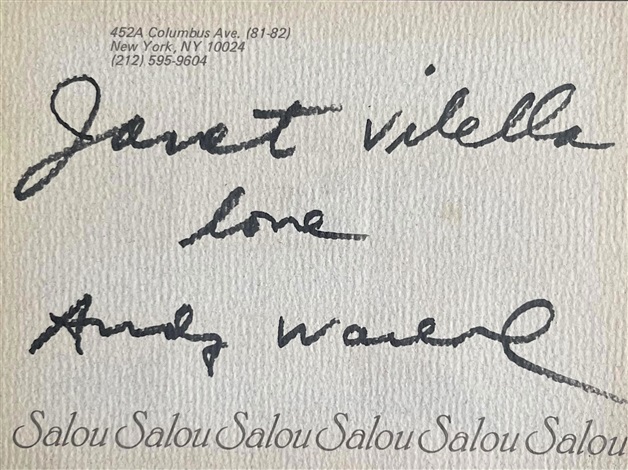 452A Columbus Ave. (81-82)
New York, NY 10024
(212) 595-9604
Janet Vilella
love
Andy Warhol
Salou Salou Salou Salou Salou Salou